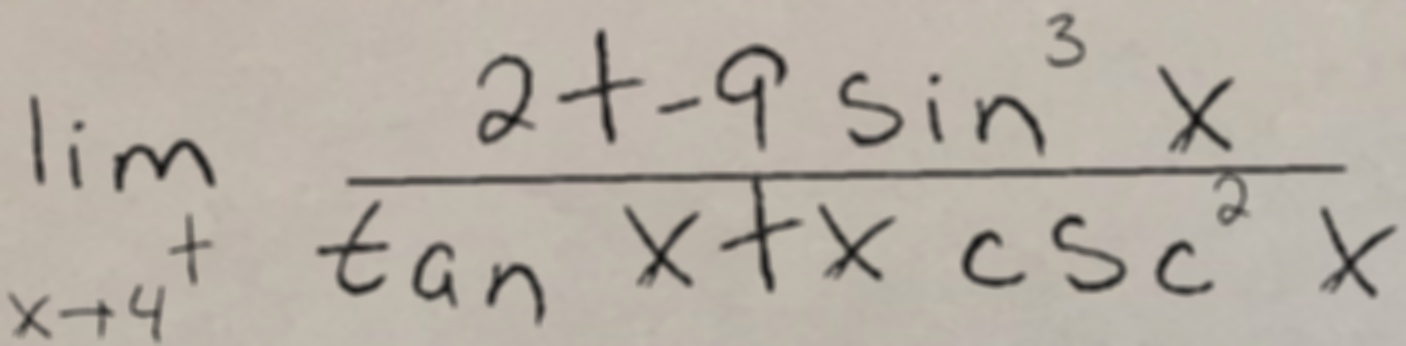 lim 2+-9 sin^3 x
x→4^+ tan x+x csc^2 x